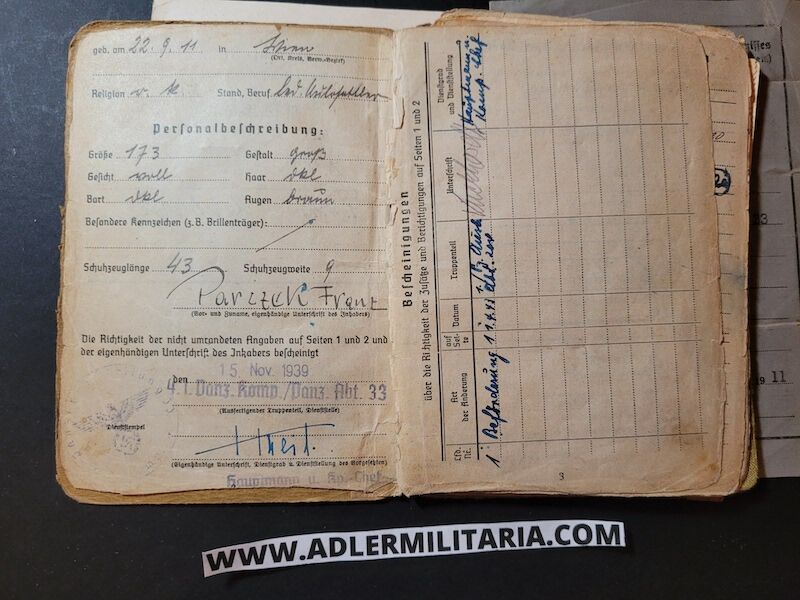 geb. am 22. 9. 11 in Wien
(Ort, Kreis, Verw.-Bezirk)
Religion r. k. Stand, Beruf led.
Personalbeschreibung:
Größe 173 Gestalt groß
Gesicht voll Haar dkl
Bart dkl Augen braun
Besondere Kennzeichen (z. B. Brillenträger):
Schuhzeuglänge 43 Schuhzeugweite 9
Parizek Franz
(Vor- und Zuname, eigenhändige Unterschrift des Inhabers)
Die Richtigkeit der nicht umrandeten Angaben auf Seiten 1 und 2 und
der eigenhändigen Unterschrift des Inhabers bescheinigt
den 15 Nov. 1939
4. l. Panz. Komp./Panz. Abt. 33
(Ausfertigender Truppenteil, Dienststelle)
Dienststempel
(Eigenhändige Unterschrift, Dienstgrad u. Dienststellung des Vorgesetzten)
Hauptmann u. Kp.-Chef
Bescheinigungen
über die Richtigkeit der Zusätze und Berichtigungen auf Seiten 1 und 2
Lfd. Nr.
Art der Änderung
auf Seite
Datum
Truppenteil
Unterschrift
Dienstgrad und Dienststellung
1 Beförderung 1
Hauptmann u. Komp. Chef
3
11
WWW.ADLERMILITARIA.COM